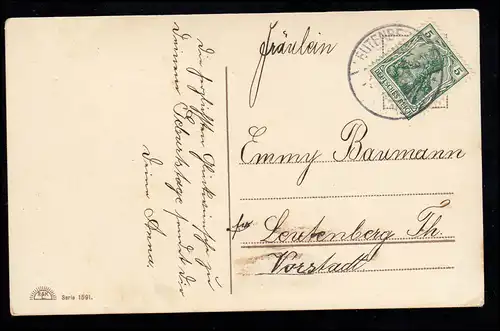 Die herzlichsten Glückwünsche zu
Deinem Geburtstage sendet Dir
Deine Anna.
Fräulein
Emmy Baumann
Leutenberg Th.
Vorstadt
LEUTENBE
5 5
DEUTSCHES REICH
Serie 1591.